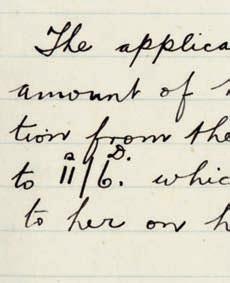 The applica
amount of
tion from the
to 11/6. whic
to her on h